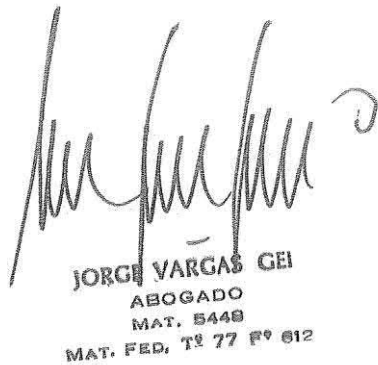 JORGE VARGAS GEI
ABOGADO
MAT. 5448
MAT. FED. Tº 77 Fº 612